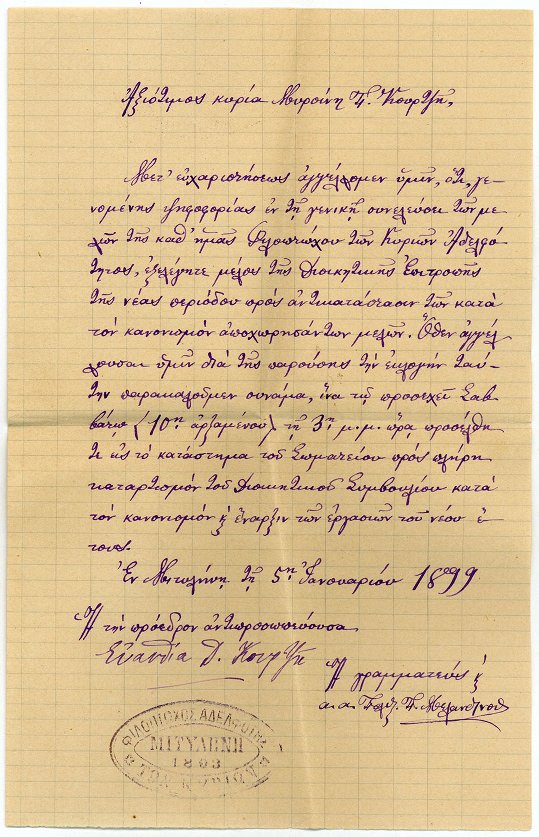 Ἀξιότιμος κυρία Μυρσίνη Π. Κουρτζῆ,
Μετ' εὐχαριστήσεως ἀγγέλλομεν ὑμῖν, ὅτι, γε-
νομένης ψηφοφορίας ἐν τῇ γενικῇ συνελεύσει τῶν με-
λῶν τῆς καθ' ἡμᾶς Φιλοπτώχου τῶν Κυριῶν Ἀδελφό
τητος, ἐξελέγητε μέλος τῆς Διοικητικῆς Ἐπιτροπῆς
τῆς νέας περιόδου πρὸς ἀντικατάστασιν τῶν κατὰ
τὸν κανονισμὸν ἀποχωρησάντων μελῶν. Ὅθεν ἀγγέλ
λουσαι ὑμῖν διὰ τῆς παρούσης τὴν ἐκλογὴν ταύ-
την παρακαλοῦμεν συνάμα, ἵνα τῷ προσεχεῖ Σαβ-
βάτῳ (10ῃ ἀρξαμένου) τῇ 3ῃ μ.μ. ὥρᾳ προσέλθη
τε εἰς τὸ κατάστημα τοῦ Σωματείου πρὸς πλήρη
καταρτισμὸν τοῦ Διοικητικοῦ Συμβουλίου κατὰ
τὸν κανονισμὸν κ ἔναρξιν τῶν ἐργασιῶν τοῦ νέου ἔ-
τους.
Ἐν Μυτιλήνῃ τῇ 5ῃ Ἰανουαρίου 1899
Ἡ τὴν πρόεδρον ἀντιπροσωπεύουσα
Εὐανθία Δ. Κουρτζῆ
Ἡ γραμματεύς κ
α.α. Π.
ΦΙΛΟΠΤΩΧΟΣ ΑΔΕΛΦΟΤΗΣ
ΜΙΤΥΛΕΝΗ
1893
ΤΩΝ ΚΥΡΙΩΝ